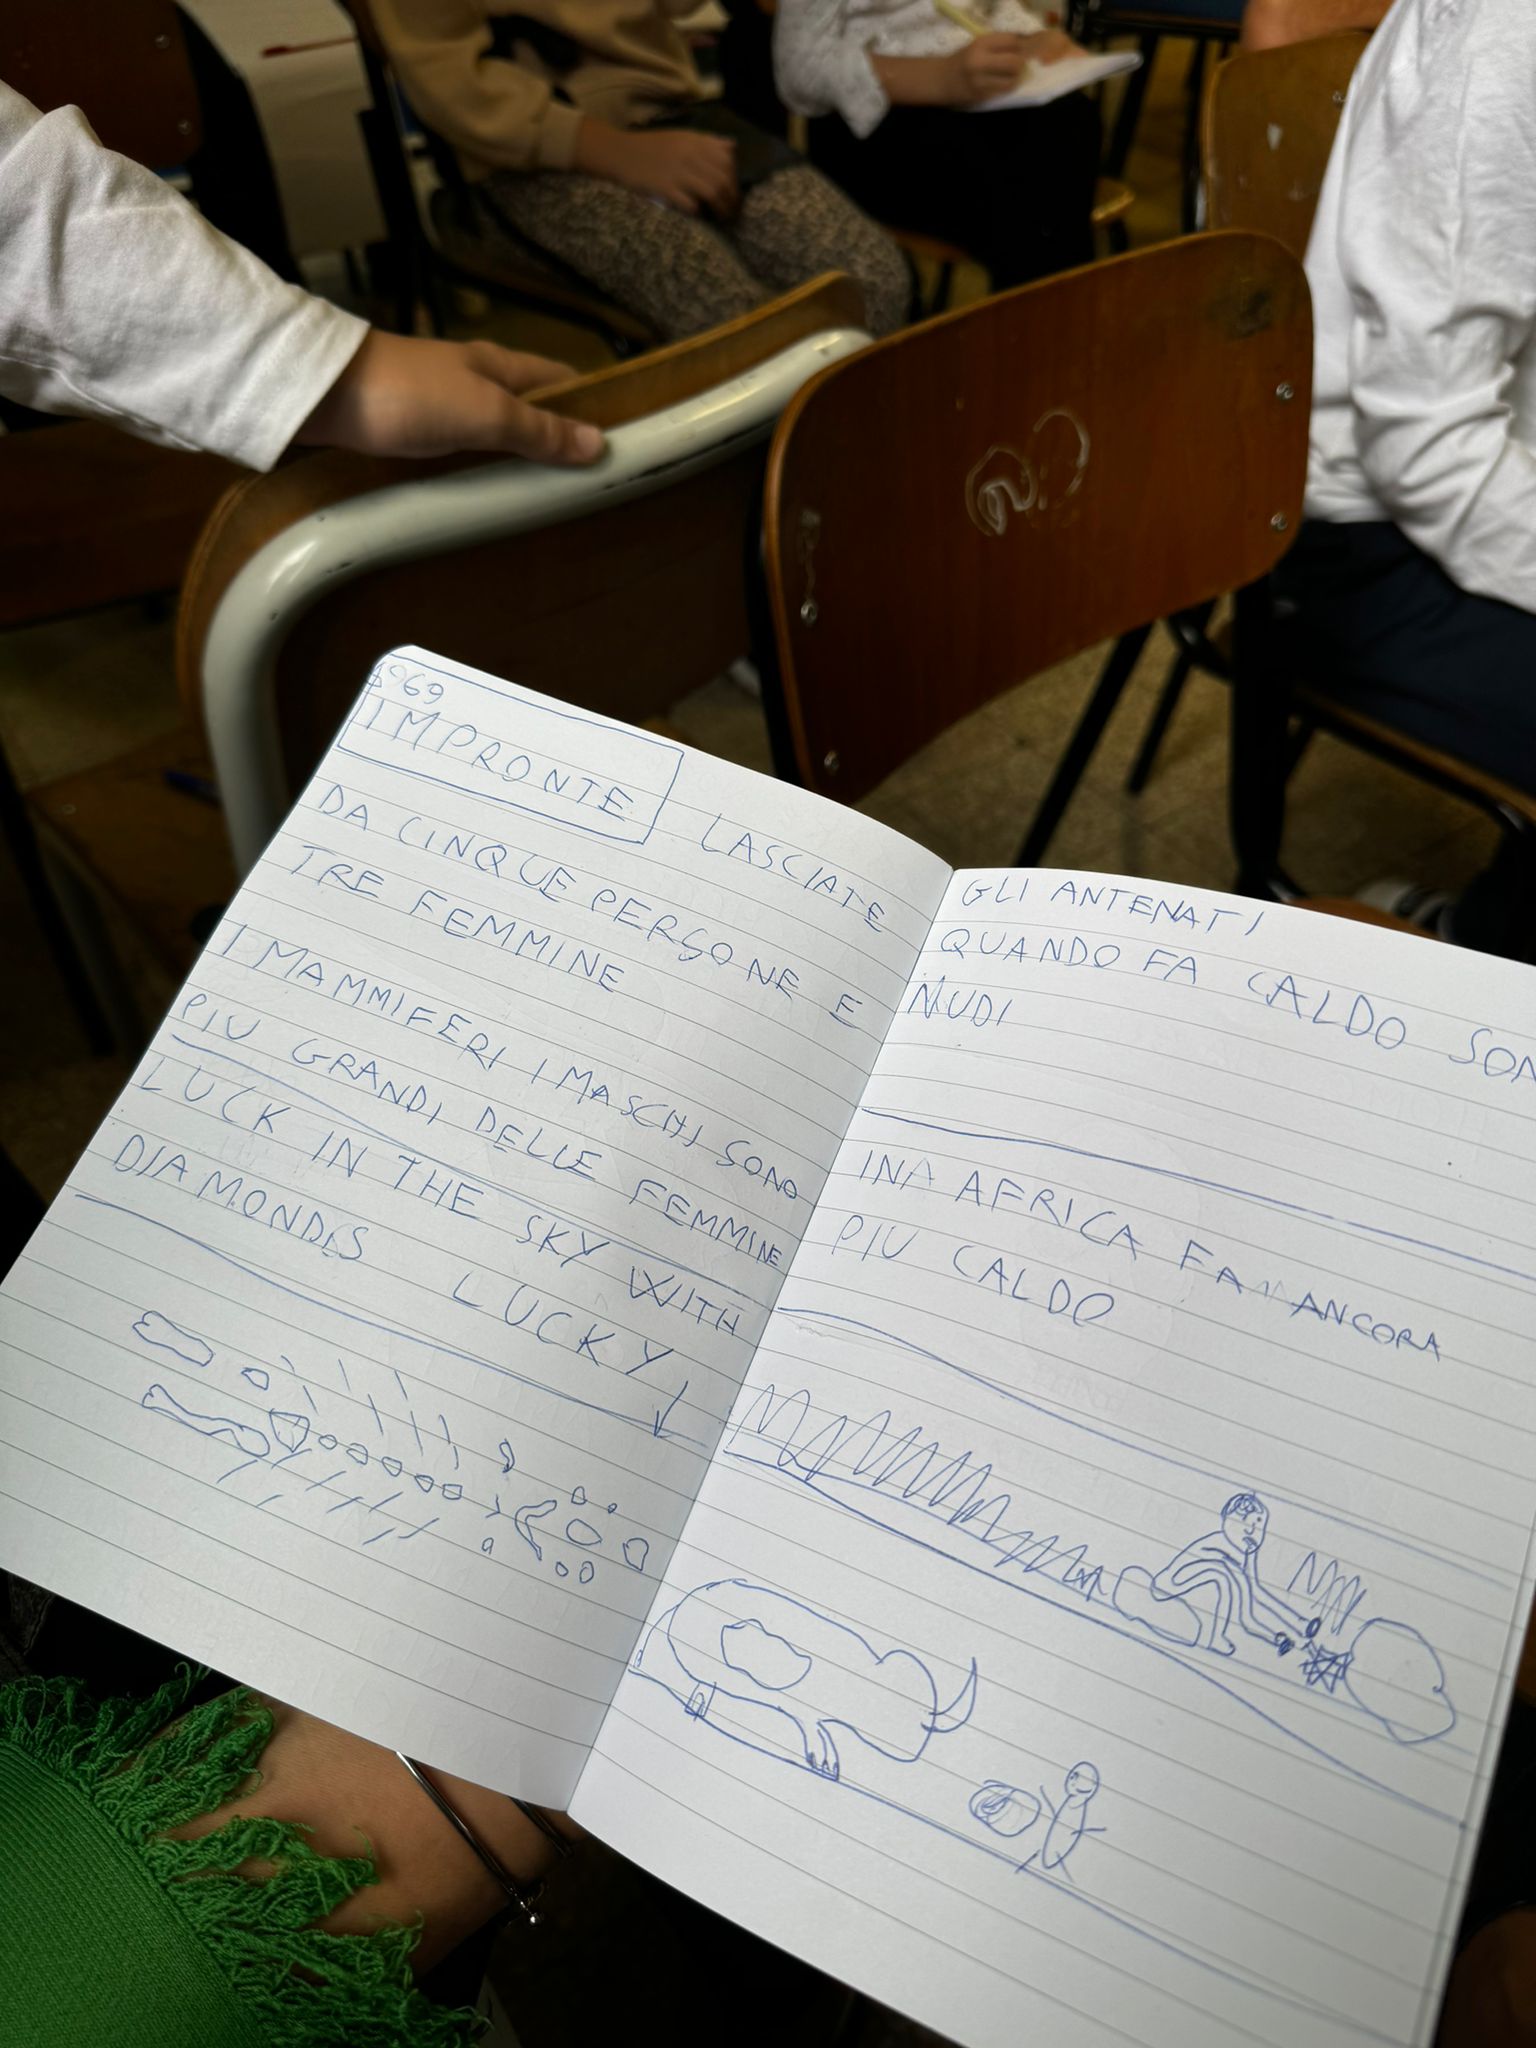 1969
IMPRONTE LASCIATE
DA CINQUE PERSONE E
TRE FEMMINE
I MAMMIFERI I MASCHI SONO
PIU GRANDI DELLE FEMMINE
LUCK IN THE SKY WITH
DIAMONDS LUCKY
GLI ANTENATI
QUANDO FA CALDO SON
NUDI
INA AFRICA FA ANCORA
PIU CALDO